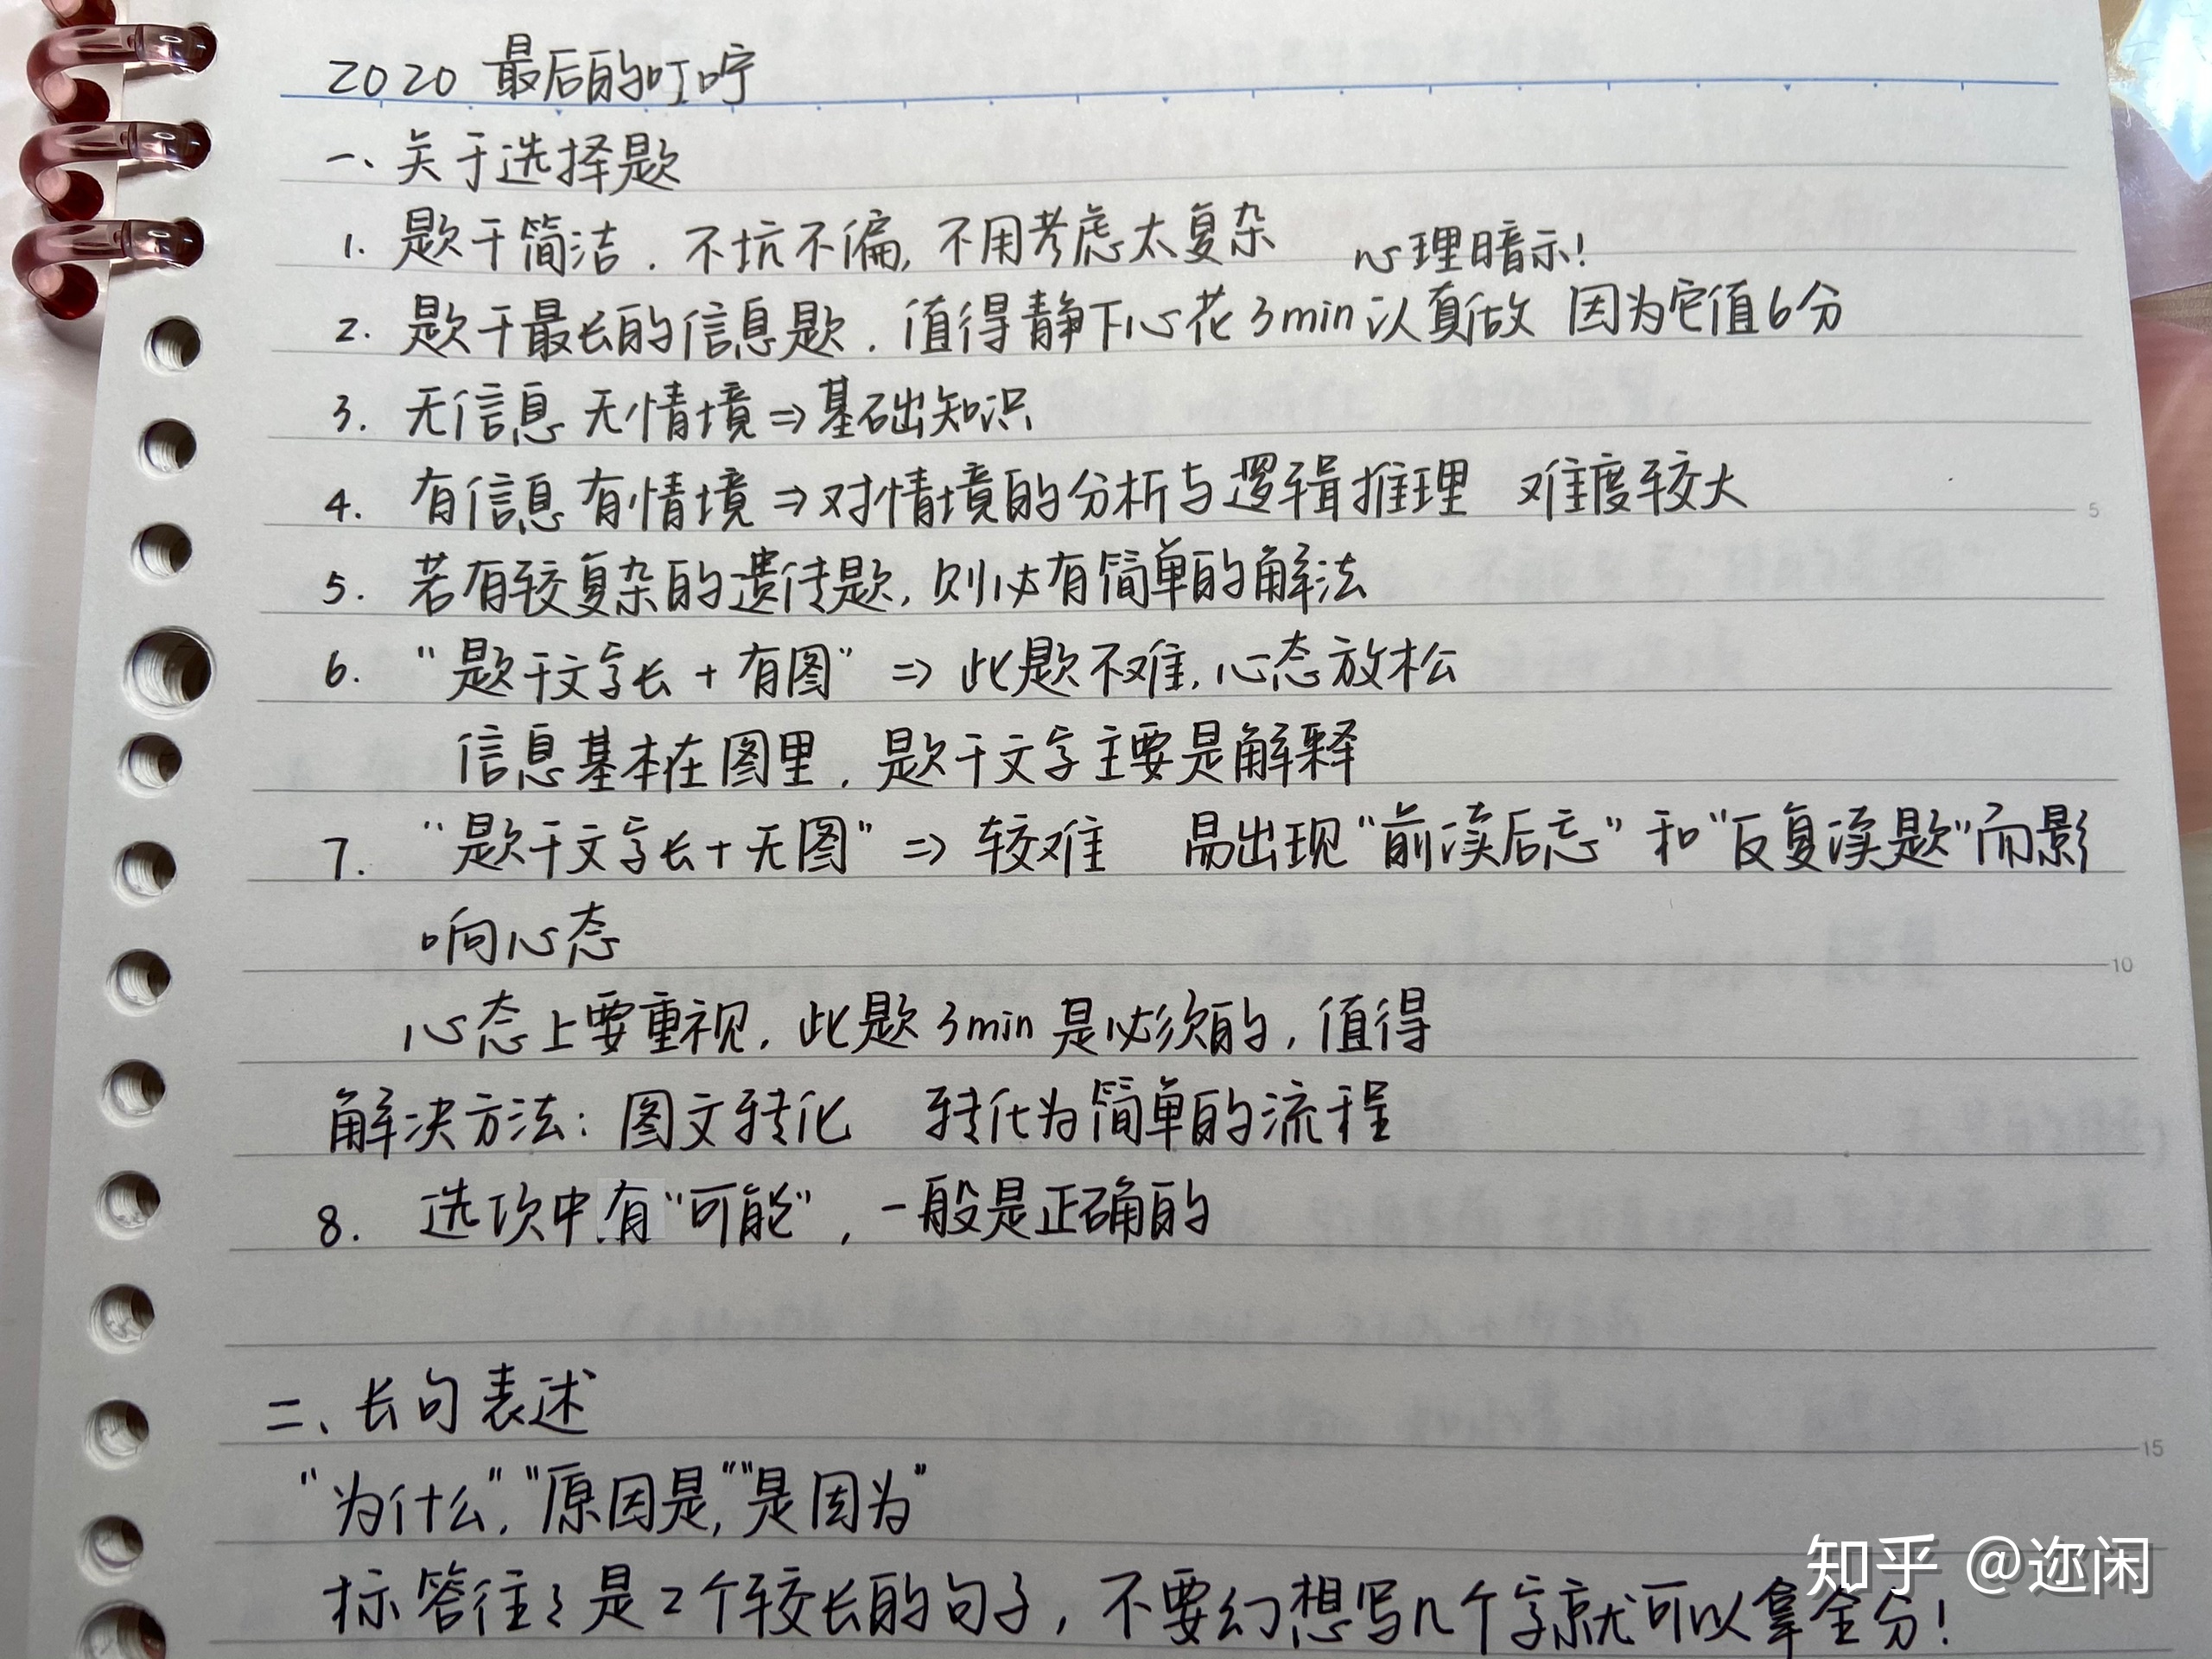 2020 最后的叮咛
一、关于选择题
1. 题干简洁．不坑不偏, 不用考虑太复杂
心理暗示!
2. 题干最长的信息题．值得静下心花3min认真做 因为它值6分
3. 无信息 无情境⇒基础知识
4. 有信息 有情境⇒对情境的分析与逻辑推理 难度较大
5. 若有较复杂的遗传题, 则必有简单的解法
6. "题干文字长 + 有图" ⇒ 此题不难, 心态放松
信息基本在图里, 题干文字主要是解释
7. "题干文字长+无图" ⇒ 较难 易出现"前读后忘" 和"反复读题"而影
响心态
心态上要重视, 此题 3min 是必须的, 值得
解决方法: 图文转化 转化为简单的流程
8. 选项中有"可能", 一般是正确的
二、长句表述
"为什么", "原因是," "是因为"
标答往々是2个较长的句子, 不要幻想写几个字就可以拿全分!
5
10
15
知乎 @迩闲